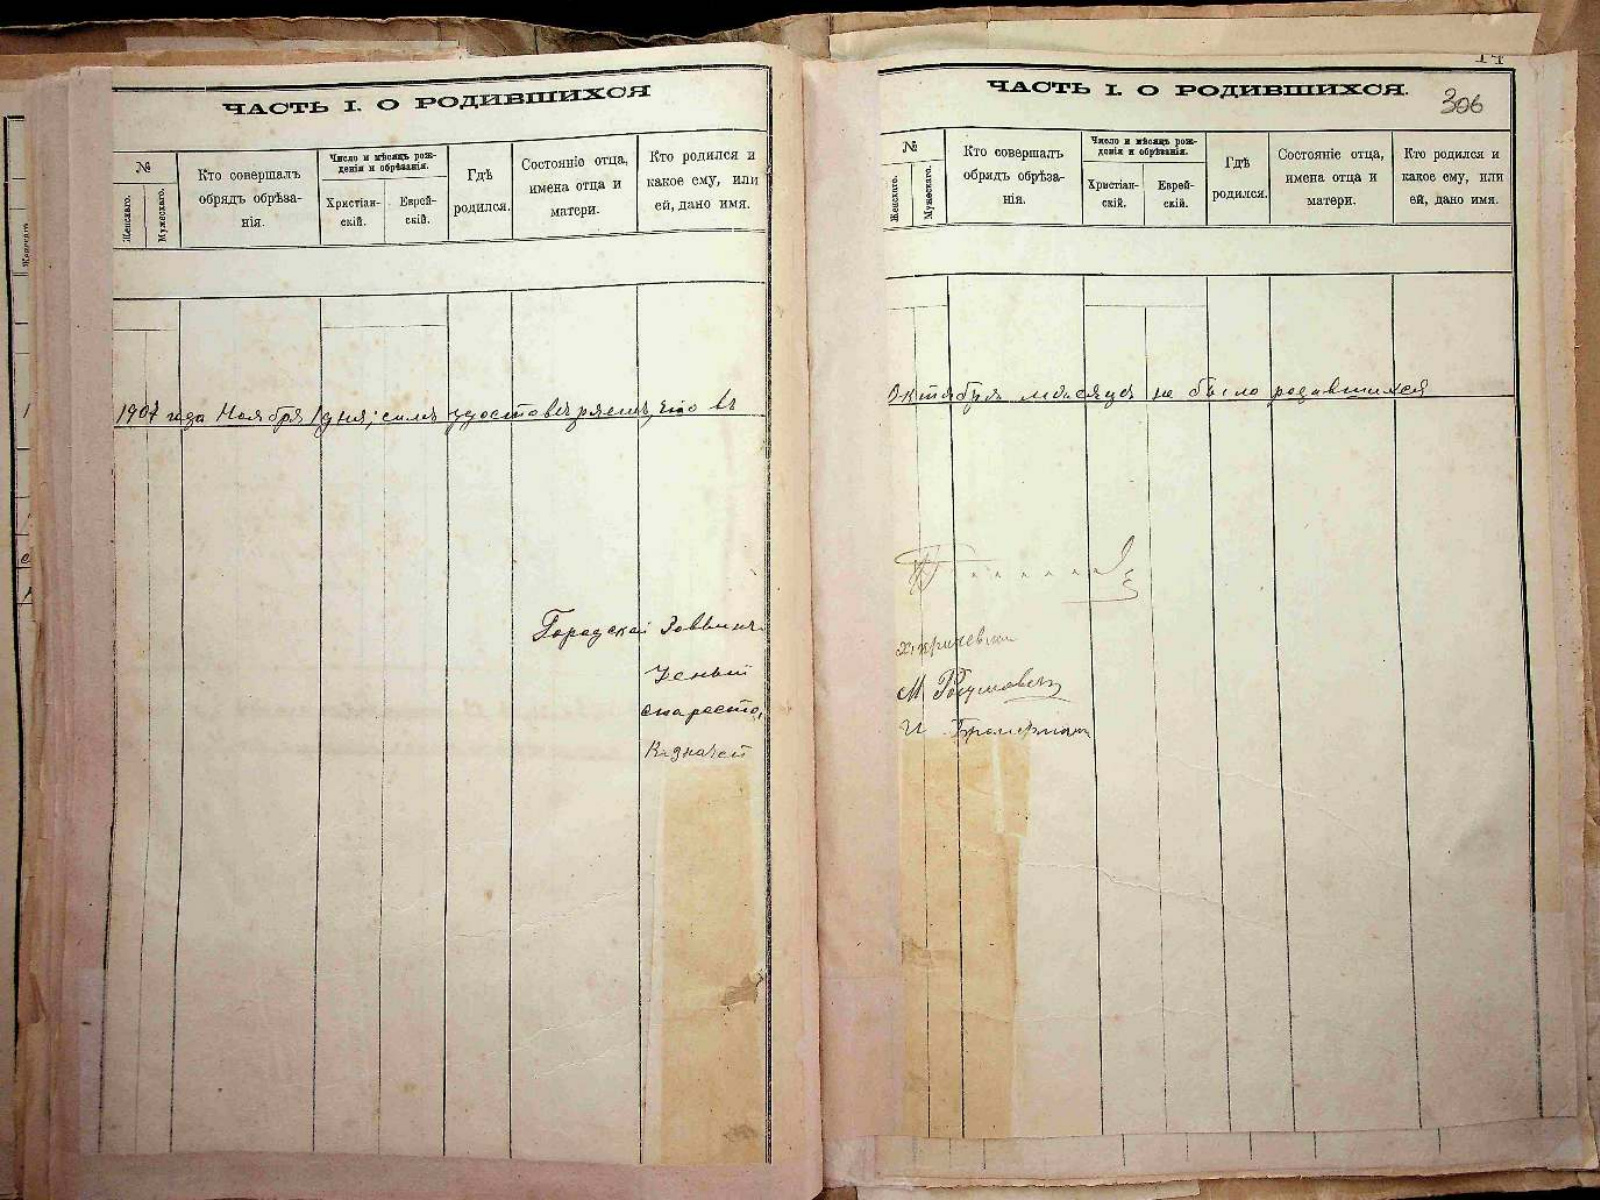 ЧАСТЬ I. О РОДИВШИХСЯ
№
Женскаго.
Мужескаго.
Кто совершалъ
обрядъ обрѣза-
нія.
Число и мѣсяцъ рож-
денія и обрѣзанія.
Христіан-
скій.
Еврей-
скій.
Гдѣ
родился.
Состояніе отца,
имена отца и
матери.
Кто родился и
какое ему, или
ей, дано имя.
1907 года Ноября 1 дня; симъ удостовѣряемъ, что въ
Городской
Ученый
староста,
Казначей
ЧАСТЬ I. О РОДИВШИХСЯ.
306
№
Женскаго.
Мужескаго.
Кто совершалъ
обрядъ обрѣза-
нія.
Число и мѣсяцъ рож-
денія и обрѣзанія.
Христіан-
скій.
Еврей-
скій.
Гдѣ
родился.
Состояніе отца,
имена отца и
матери.
Кто родился и
какое ему, или
ей, дано имя.
Октябрѣ мѣсяцѣ не было родившихся
М